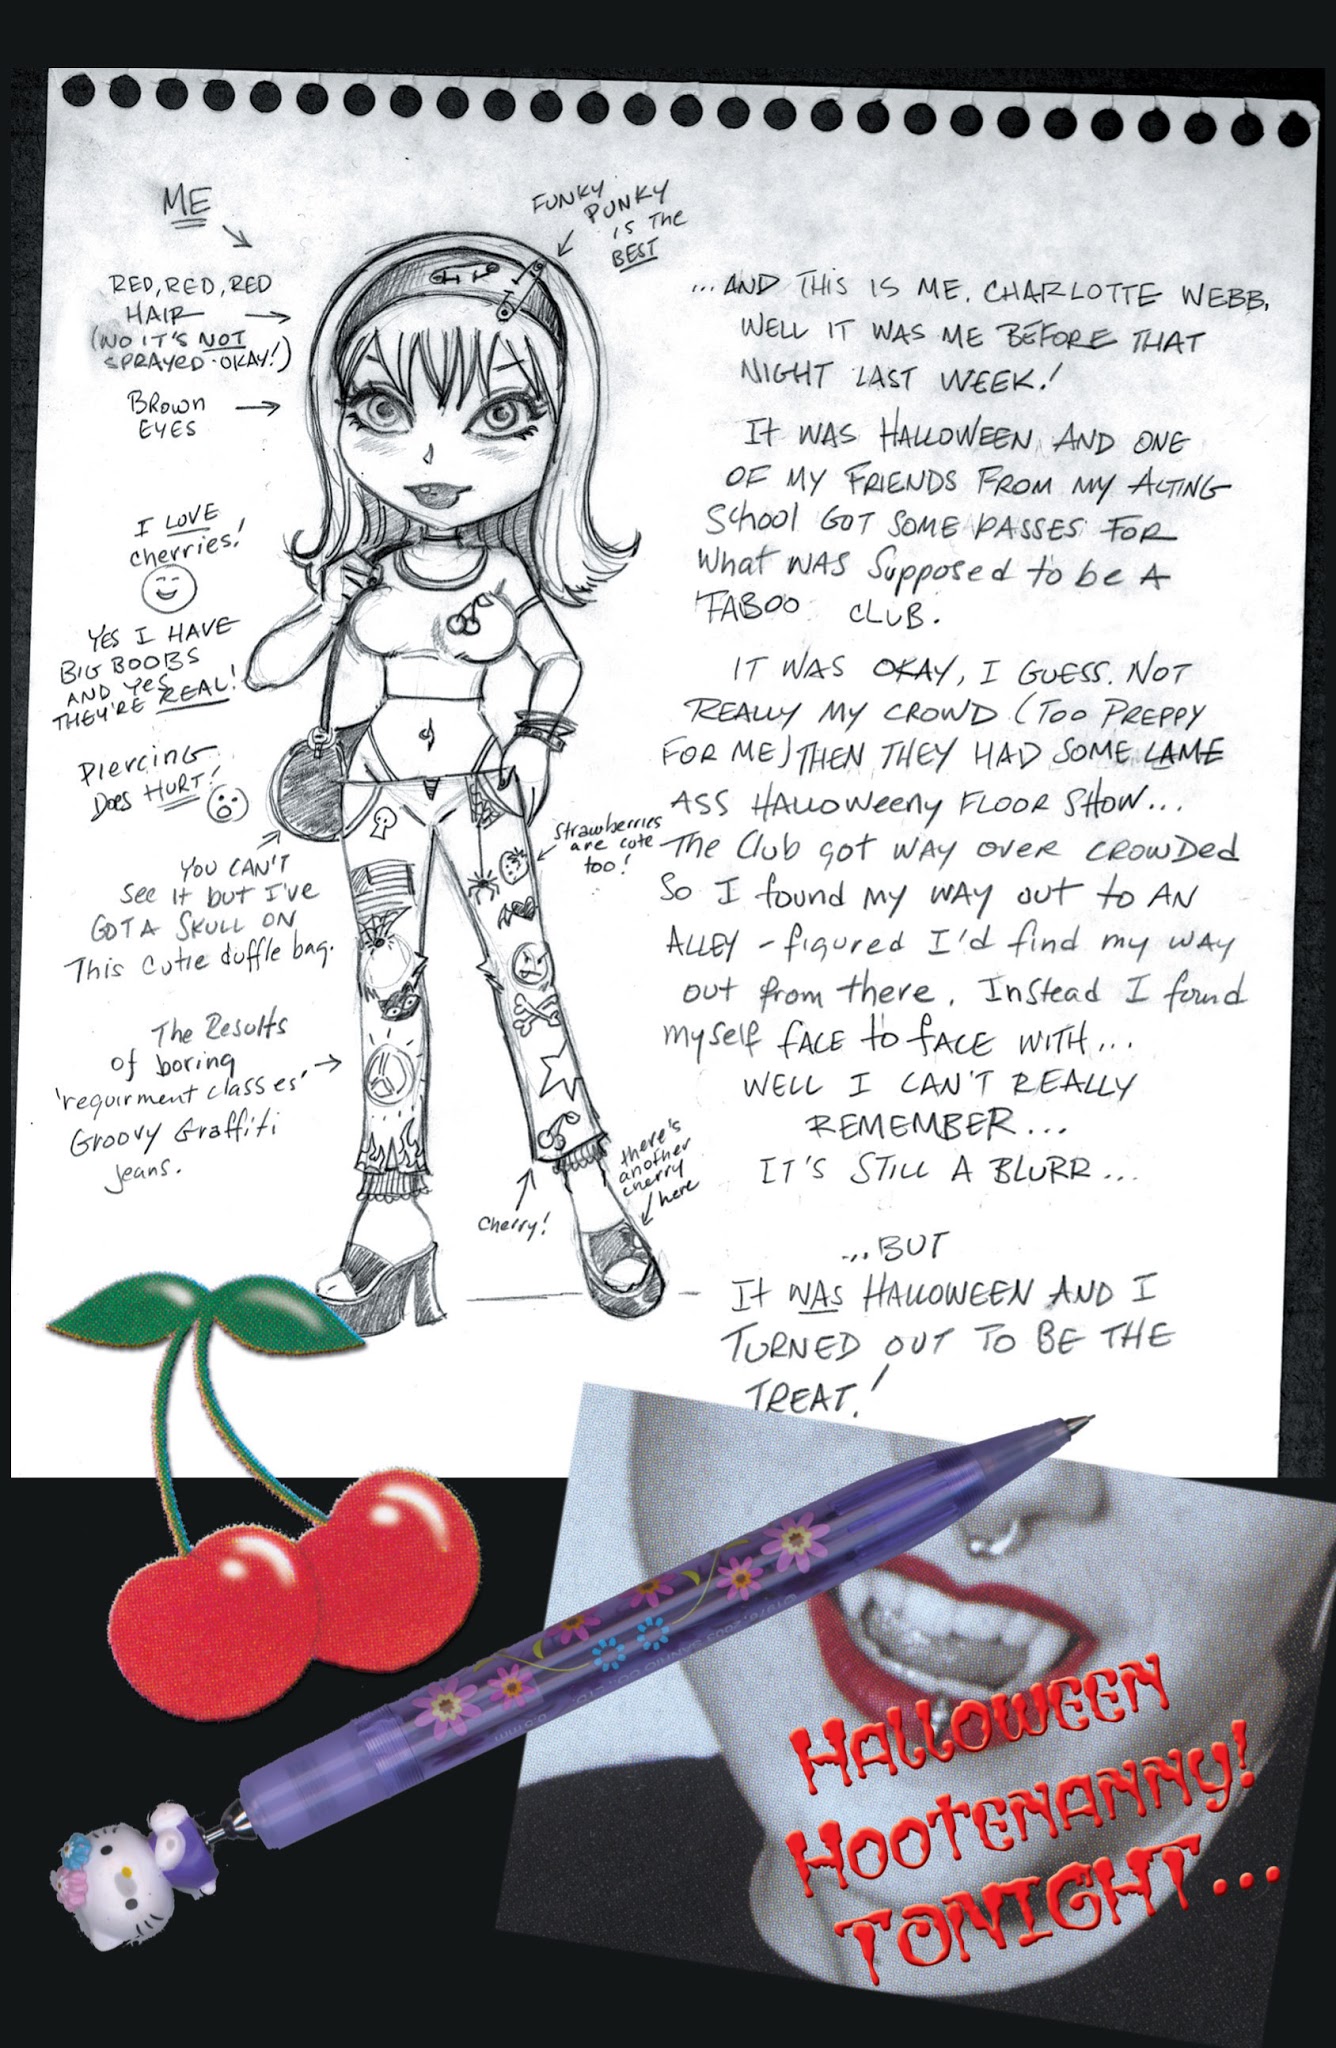 ME
FUNKY
PUNKY
IS THE
BEST
RED, RED, RED
HAIR
(NO IT'S NOT
SPRAYED-OKAY!)
BROWN
EYES
I LOVE
cherries!
YES I HAVE
BIG BOOBS
AND YES
THEY'RE REAL!
PIERCING
DOES HURT!
YOU CAN'T
See it but I'VE
GOT A SKULL ON
This cutie duffle bag.
Strawberries
are cute
too!
The Results
of boring
'requirment classes'
Groovy Graffiti
jeans.
Cherry!
there's
another
cherry
here
...AND THIS IS ME. CHARLOTTE WEBB,
WELL IT WAS ME BEFORE THAT
NIGHT LAST WEEK!
IT WAS HALLOWEEN AND ONE
OF MY FRIENDS FROM MY ACTING
SCHOOL GOT SOME PASSES FOR
WHAT WAS Supposed to be A
TABOO CLUB.
IT WAS OKAY, I GUESS. NOT
REALLY MY CROWD (TOO PREPPY
FOR ME) THEN THEY HAD SOME LAME
ASS HALLOWEENY FLOOR SHOW...
The Club got way over crowded
So I found my way out to AN
ALLEY - figured I'd find my way
out from there. Instead I found
myself FACE to FACE WITH...
WELL I CAN'T REALLY
REMEMBER...
IT'S STILL A BLURR...
...BUT
It WAS HALLOWEEN AND I
TURNED OUT TO BE THE
TREAT!
©1976, 2003 SANRIO CO., LTD.
0.5mm
HALLOWEEN
HOOTENANNY!
TONIGHT...